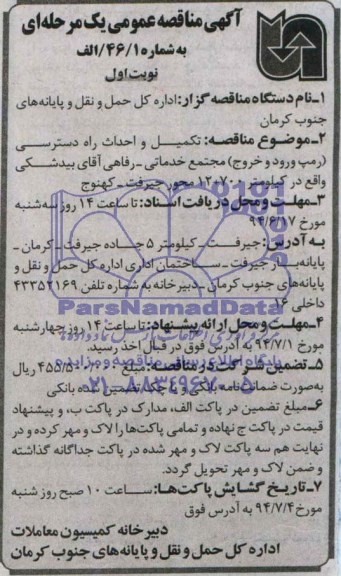 آگهی مناقصه عمومی یک مرحله‌ای
به شماره ۴۶/۱/الف
نوبت اول
۱ـ نام دستگاه مناقصه گزار: اداره کل حمل و نقل و پایانه‌های
جنوب کرمان
۲ـ موضوع مناقصه: تکمیل و احداث راه دسترسی
(رمپ ورود و خروج) مجتمع خدماتی ـ رفاهی آقای بیدشکی
واقع در کیلومتر محور جیرفت ـ کهنوج
۳ـ مهلت و محل دریافت اسناد: تا ساعت ۱۴ روز سه‌شنبه
مورخ ۹۴/۶/۱۷
به آدرس: جیرفت ـ کیلومتر ۵ جاده جیرفت ـ کرمان ـ
پایانه بار جیرفت ـ ساختمان اداری اداره کل حمل و نقل و
پایانه‌های جنوب کرمان ـ دبیرخانه به شماره تلفن ۴۳۳۵۲۱۶۹
داخلی ۱۶
ParsNamadData
۴ـ مهلت و محل ارائه پیشنهاد: تا ساعت ۱۴ روز چهارشنبه
مورخ ۹۴/۷/۱ به آدرس فوق در قبال اخذ رسید.
پایگاه اطلاع رسانی مناقصه و مزایده
۵ـ تضمین شرکت در مناقصه: مبلغ ریال
۰۲۱-۸۸۳۴۹۶۷۰-۵
به‌صورت ضمانت‌نامه بانکی و یا چک تضمین شده بانکی
۶ـ مبلغ تضمین در پاکت الف، مدارک در پاکت ب، و پیشنهاد
قیمت در پاکت ج نهاده و تمامی پاکت‌ها را لاک و مهر کرده و در
نهایت هم سه پاکت لاک و مهر شده در پاکت جداگانه گذاشته
و ضمن لاک و مهر تحویل گردد.
۷ـ تاریخ گشایش پاکت‌ها: ساعت ۱۰ صبح روز شنبه
مورخ ۹۴/۷/۴ به آدرس فوق
دبیرخانه کمیسیون معاملات
اداره کل حمل و نقل و پایانه‌های جنوب کرمان